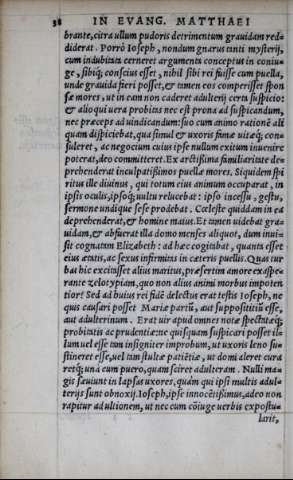 38 IN EVANG. MATTHAEI
brante,citra ullum pudoris detrimentum grauidam red=
diderat. Porrò Ioseph, nondum gnarus tanti mysterij,
cum indubitata cerneret argumenta conceptus in coniu=
ge, sibiq; conscius esset, nihil sibi rei fuisse cum puella,
unde grauida fieri posset, & tamen eos comperisset spon
sæ mores, ut in eam non caderet adulterij certa suspicio:
& alioqui uera probitas nec est prona ad suspicandum,
nec præceps ad uindicandum: suo cum animo rationē ali
quam dispiciebat, qua simul & uxoris famæ uitæq; con=
suleret, ac negocium cuius ipse nullum exitum inuenire
poterat, deo committeret. Ex arctissima familiaritate de=
prehenderat inculpatissimos puellæ mores. Siquidem spi
ritus ille diuinus, qui totum eius animum occuparat, in
ipsis oculis, ipsoq; uultu relucebat: ipso incessu, gestu,
sermone undique sese prodebat. Cœleste quiddam in ea
deprehenderat, & homine maius. Et tamen uidebat gra=
uidam, & abfuerat illa domo menses aliquot, dum inui=
sit cognatam Elizabeth: ad hæc cogitabat, quanta esset
eius ætatis, ac sexus infirmitas in cæteris puellis. Quas tur
bas hic excitasset alius maritus, præsertim amore exaspe=
rante zelotypiam, quo non alius animi morbus impoten
tior? Sed ad huius rei fidē delectus erat testis Ioseph, ne
quis causari posset Mariæ partū, aut supposititiū esse,
aut adulterinum. Erat uir apud omnes notæ spectatæq;
probitatis ac prudentiæ: ne quisquam suspicari posset il=
lum uel esse tam insigniter improbum, ut uxoris leno su=
stineret esse, uel tam stultæ patiētiæ, ut domi aleret cura
retq; unà cum puero, quam sciret adulteram. Nulli ma=
gis sæuiunt in lapsas uxores, quàm qui ipsi multis adul=
terijs sunt obnoxij. Ioseph, ipse innocētissimus, adeo non
rapitur ad ultionem, ut nec cum cōiuge uerbis expostu=
larit,